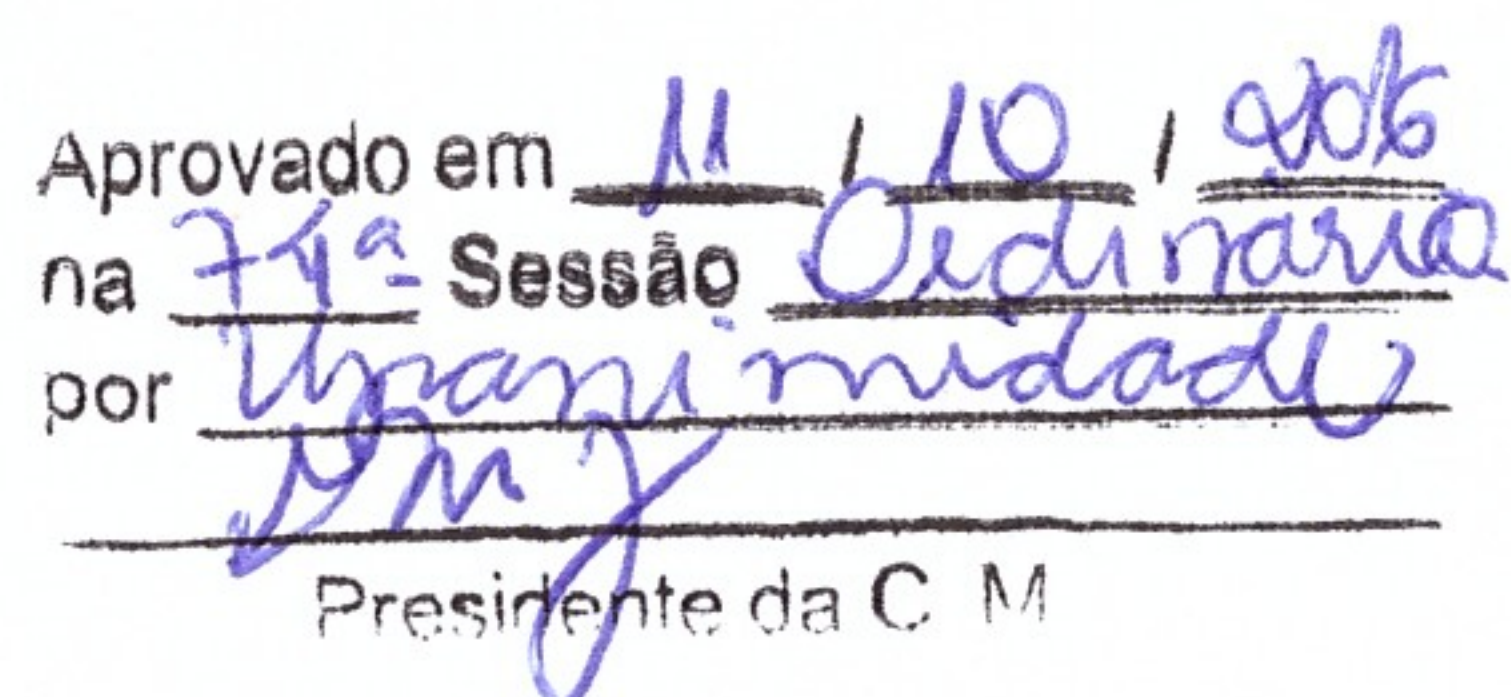 Aprovado em 11 / 10 / 2016
na 74ª Sessão Ordinaria
por Unanimidade
Presidente da C M